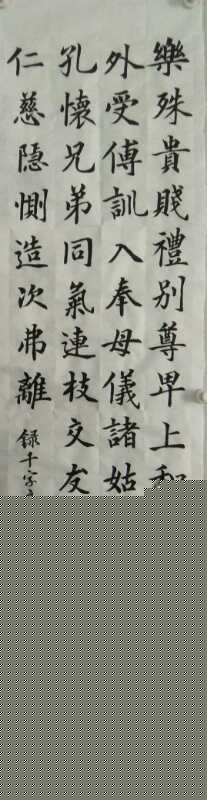 樂殊貴賤禮別尊卑上和
外受傅訓入奉母儀諸姑
孔懷兄弟同氣連枝交友
仁慈隱惻造次弗離
錄千字